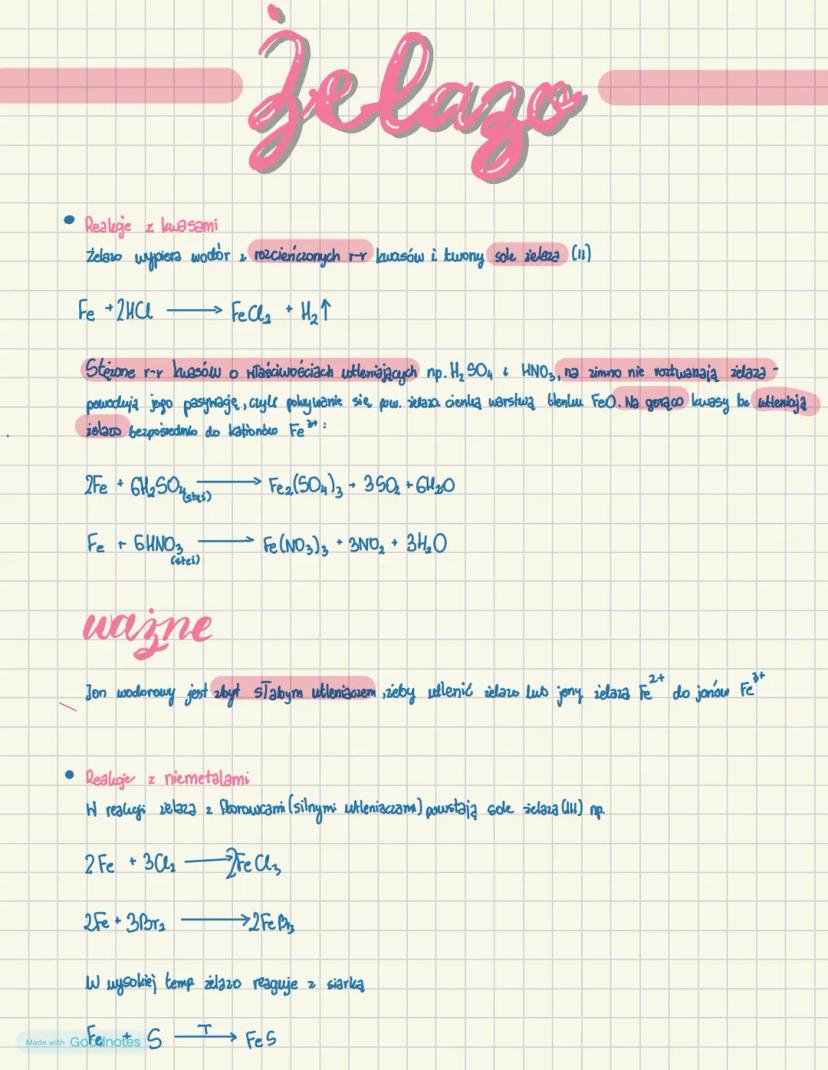 Żelazo
• Reakcje z kwasami
Żelazo wypiera wodór z rozcieńczonych r-r kwasów i tworzy sole żelaza (II)
Fe + 2HCl ⟶ FeCl₂ + H₂↑
Stężone r-r kwasów o właściwościach utleniających np. H₂SO₄ i HNO₃, na zimno nie roztwarzają żelaza -
powodują jego pasywację, czyli pokrywanie się pow. żelaza cienką warstwą tlenku FeO. Na gorąco kwasy te utleniają
żelazo bezpośrednio do kationów Fe³⁺:
2Fe + 6H₂SO₄ (stęż) ⟶ Fe₂(SO₄)₃ + 3SO₂ + 6H₂O
Fe + 6HNO₃ (stęż) ⟶ Fe(NO₃)₃ + 3NO₂ + 3H₂O
ważne
Jon wodorowy jest zbyt słabym utleniaczem, żeby utlenić żelazo lub jony żelaza Fe²⁺ do jonów Fe³⁺
• Reakcje z niemetalami
W reakcji żelaza z fluorowcami (silnymi utleniaczami) powstają sole żelaza (III) np.
2Fe + 3Cl₂ ⟶ 2FeCl₃
2Fe + 3Br₂ ⟶ 2FeBr₃
W wysokiej temp żelazo reaguje z siarką
Fe + S —T→ FeS
Made with Goodnotes